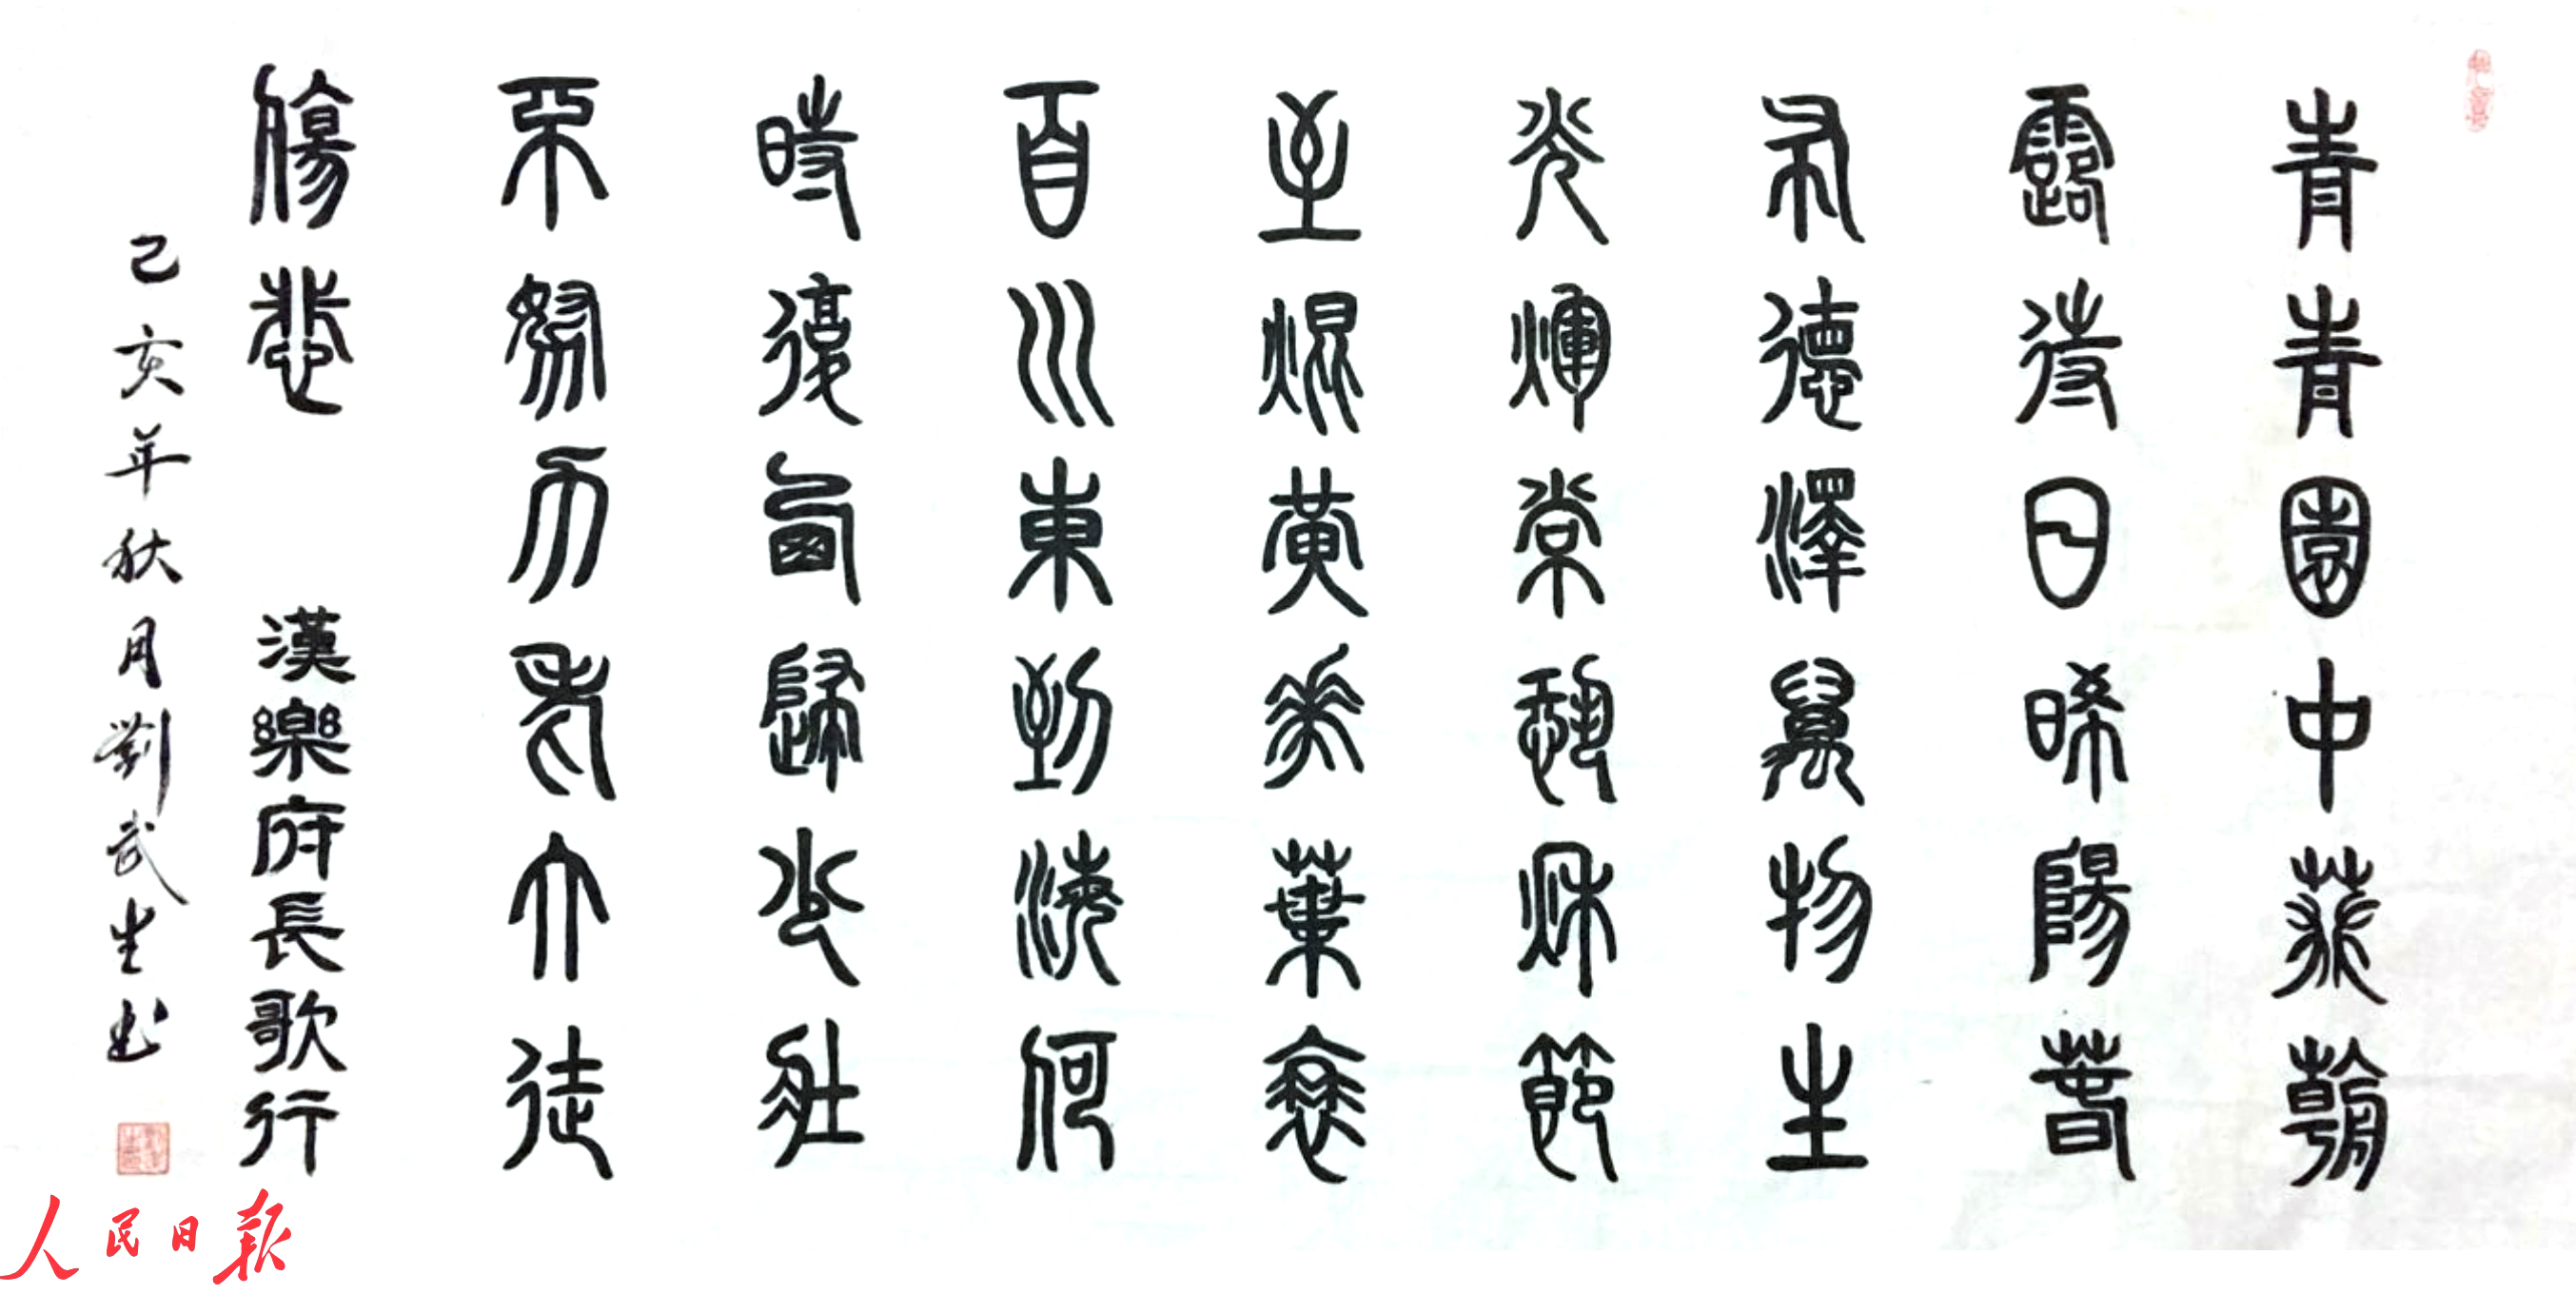 青青園中葵朝
露待日晞陽春
布德澤萬物生
光輝常恐秋節
至焜黃華葉衰
百川東到海何
時復西歸少壯
不努力老大徒
傷悲 漢樂府長歌行
己亥年秋月劉武生書
人民日報